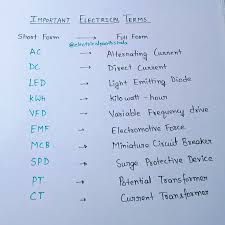 IMPORTANT ELECTRICAL TERMS
Short Form → Full Form
AC → Alternating Current
DC → Direct Current
LED → Light Emitting Diode
kWh → Kilowatt-hour
VFD → Variable Frequency drive
EMF → Electromotive Force
MCB → Miniature Circuit Breaker
SPD → Surge Protective Device
PT → Potential Transformer
CT → Current Transformer